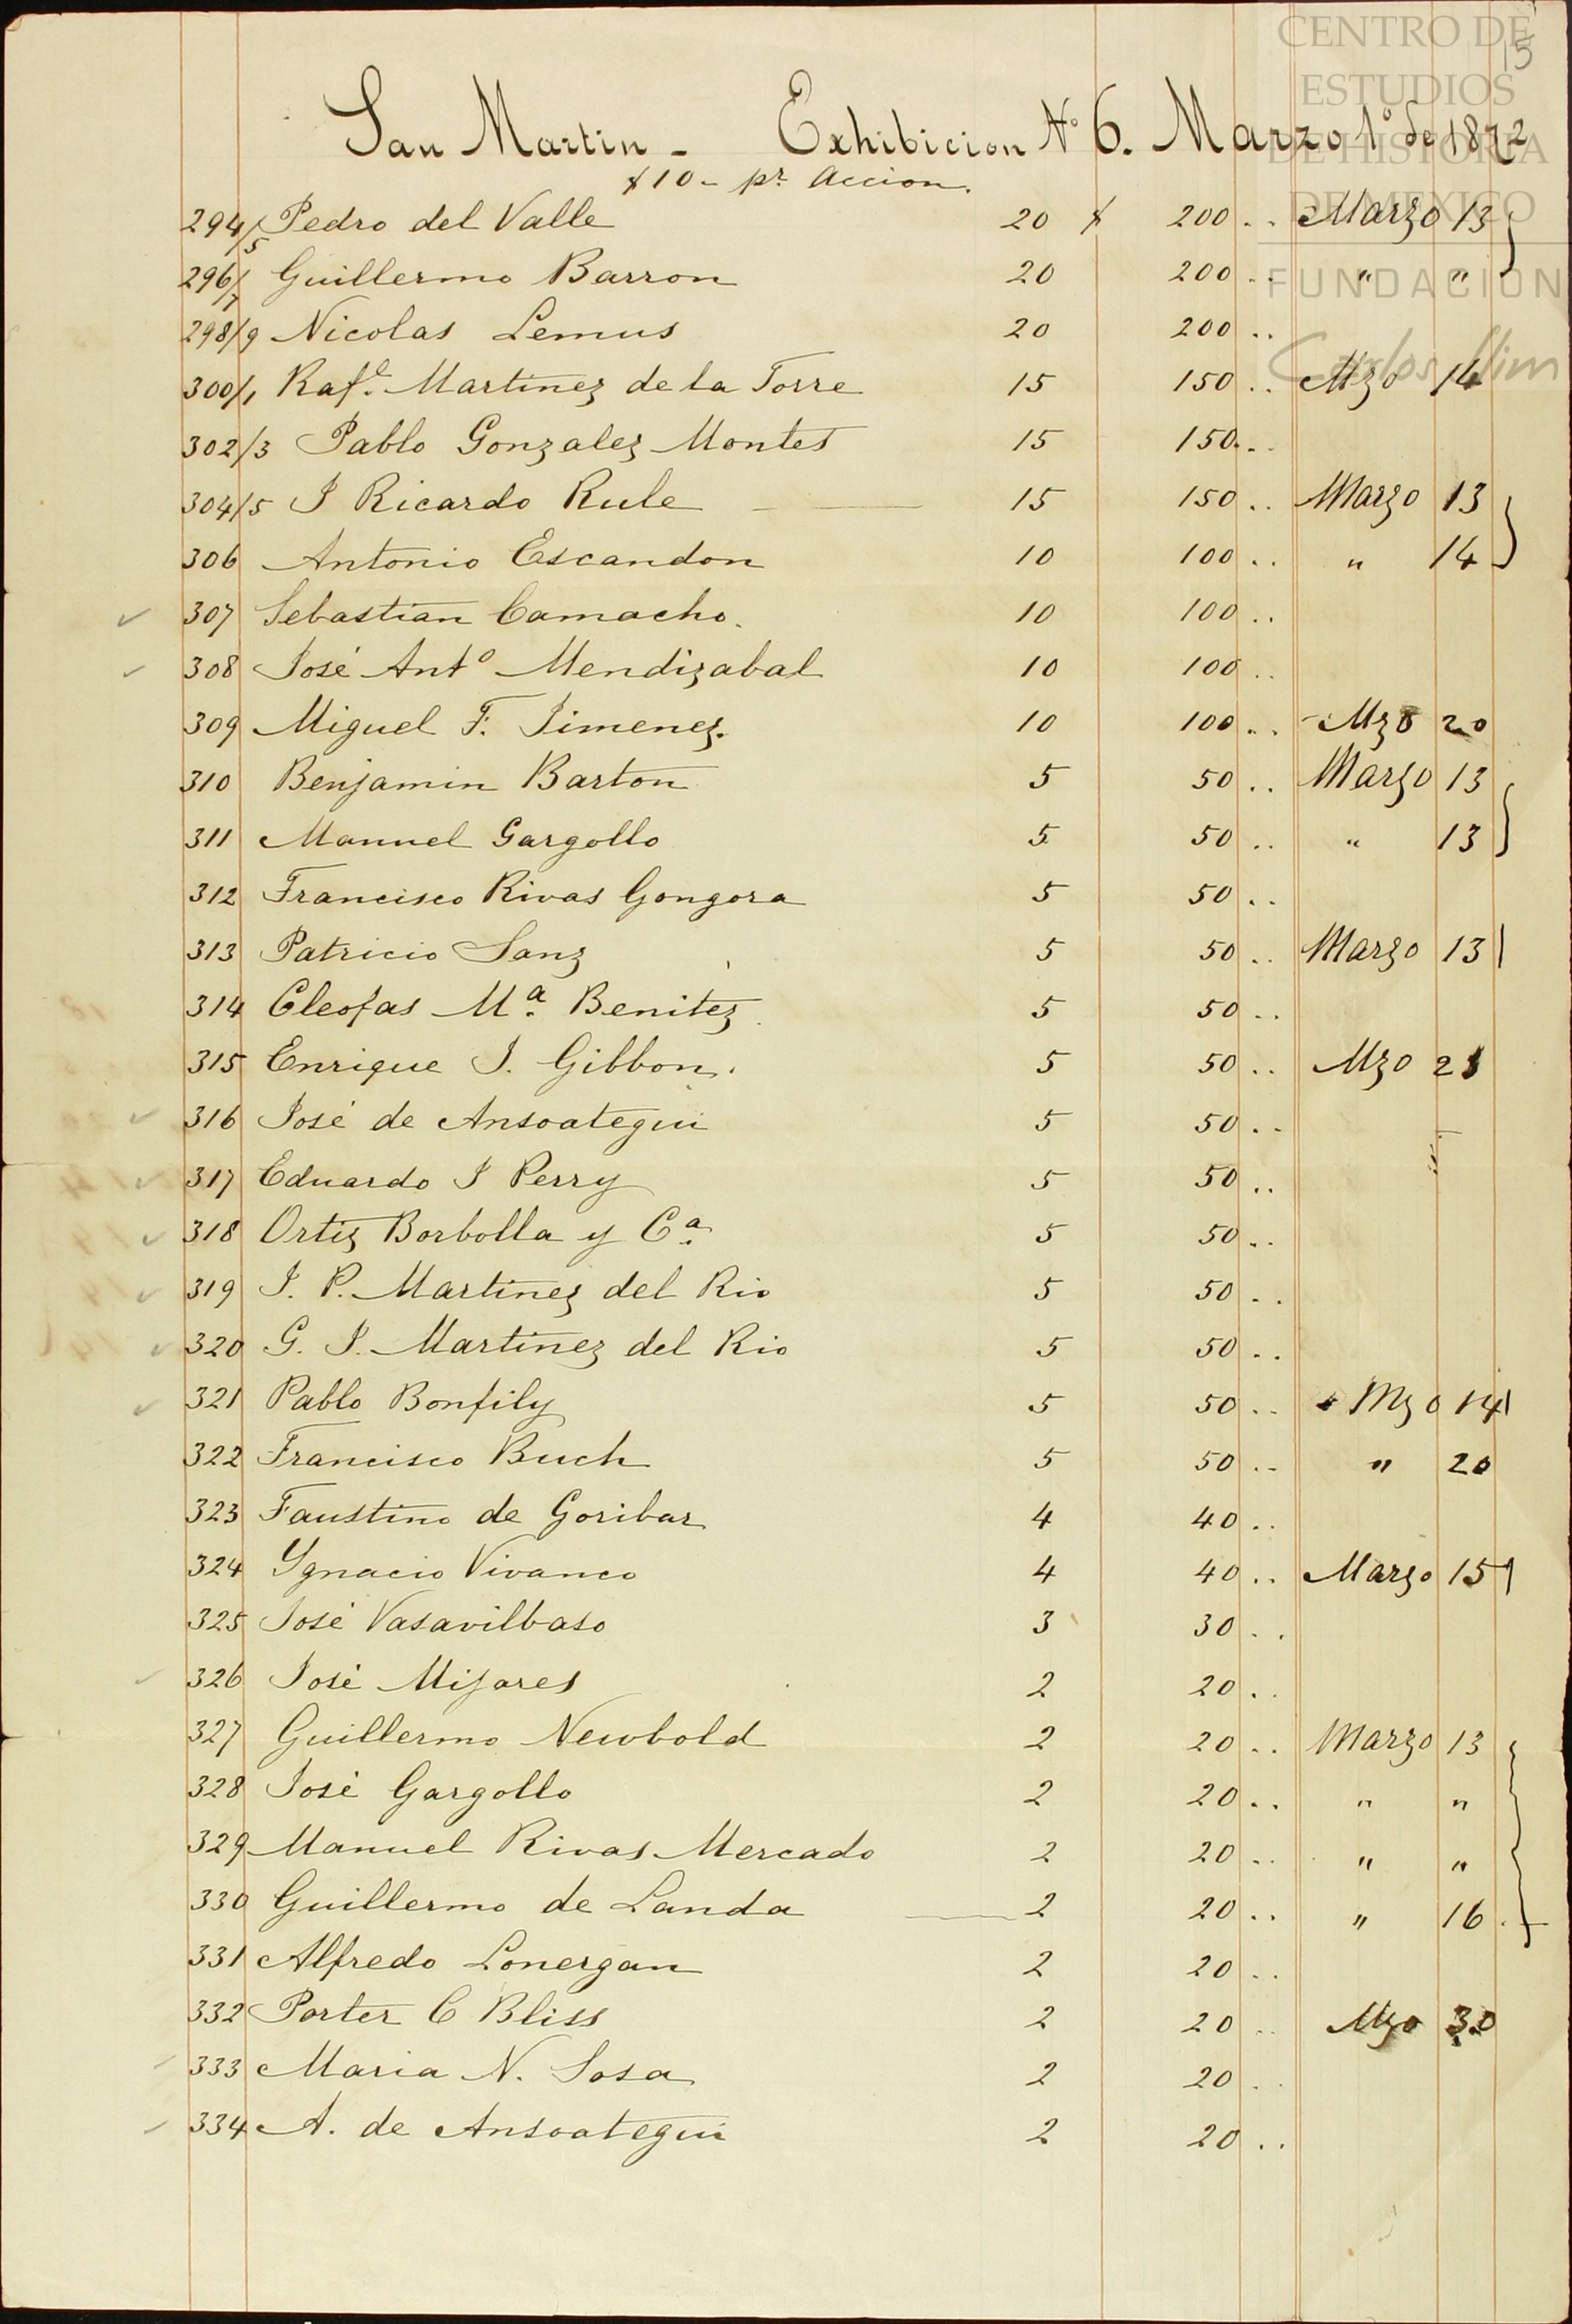 CENTRO DE
ESTUDIOS
DE HISTORIA
DE MEXICO
FUNDACION
Carlos Slim
15
San Martin - Exhibicion Nº 6. Marzo 1º de 1872
$10 - pr. Accion.
294/5 Pedro del Valle 20 $ 200 .. Marzo 13
296/7 Guillermo Barron 20 200 .. " "
298/9 Nicolas Lemus 20 200 ..
300/1 Rafl. Martinez de la Torre 15 150 .. Mzo 14
302/3 Pablo Gonzalez Montes 15 150 ..
304/5 J Ricardo Rule 15 150 .. Marzo 13
306 Antonio Escandon 10 100 .. " 14
307 Sebastian Camacho. 10 100 ..
308 José Antº Mendizabal 10 100 ..
309 Miguel F. Jimenez. 10 100 .. Mzo 20
310 Benjamin Barton 5 50 .. Marzo 13
311 Manuel Gargollo 5 50 .. " 13
312 Francisco Rivas Gongora 5 50 ..
313 Patricio Sanz 5 50 .. Marzo 13
314 Cleofas Mª. Benitez 5 50 ..
315 Enrique J. Gibbon. 5 50 .. Mzo 21
316 José de Ansoategui 5 50 ..
317 Eduardo J Perry 5 50 ..
318 Ortiz Borbolla y Cª. 5 50 ..
319 J. P. Martinez del Rio 5 50 ..
320 G. J. Martinez del Rio 5 50 ..
321 Pablo Bonfily 5 50 .. Mzo 14
322 Francisco Buch 5 50 .. " 20
323 Faustino de Goribar 4 40 ..
324 Ygnacio Vivanco 4 40 .. Marzo 15
325 José Vasavilbaso 3 30 ..
326 José Mijares 2 20 ..
327 Guillermo Newbold 2 20 .. Marzo 13
328 José Gargollo 2 20 .. " "
329 Manuel Rivas Mercado 2 20 .. " "
330 Guillermo de Landa 2 20 .. " 16
331 Alfredo Lonergan 2 20 ..
332 Porter C Bliss 2 20 .. Mzo 30
333 Maria N. Sosa 2 20 ..
334 A. de Ansoategui 2 20 ..